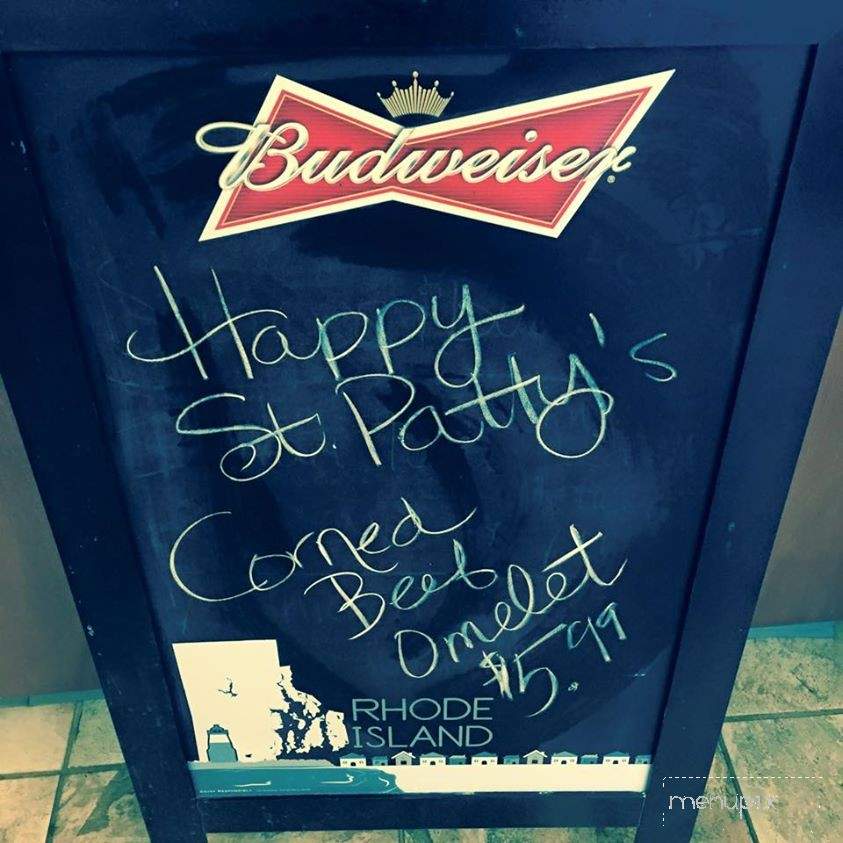 Budweiser
Happy
St. Patty's
Corned
Beef
Omelet
$5.99
RHODE
ISLAND
menupix